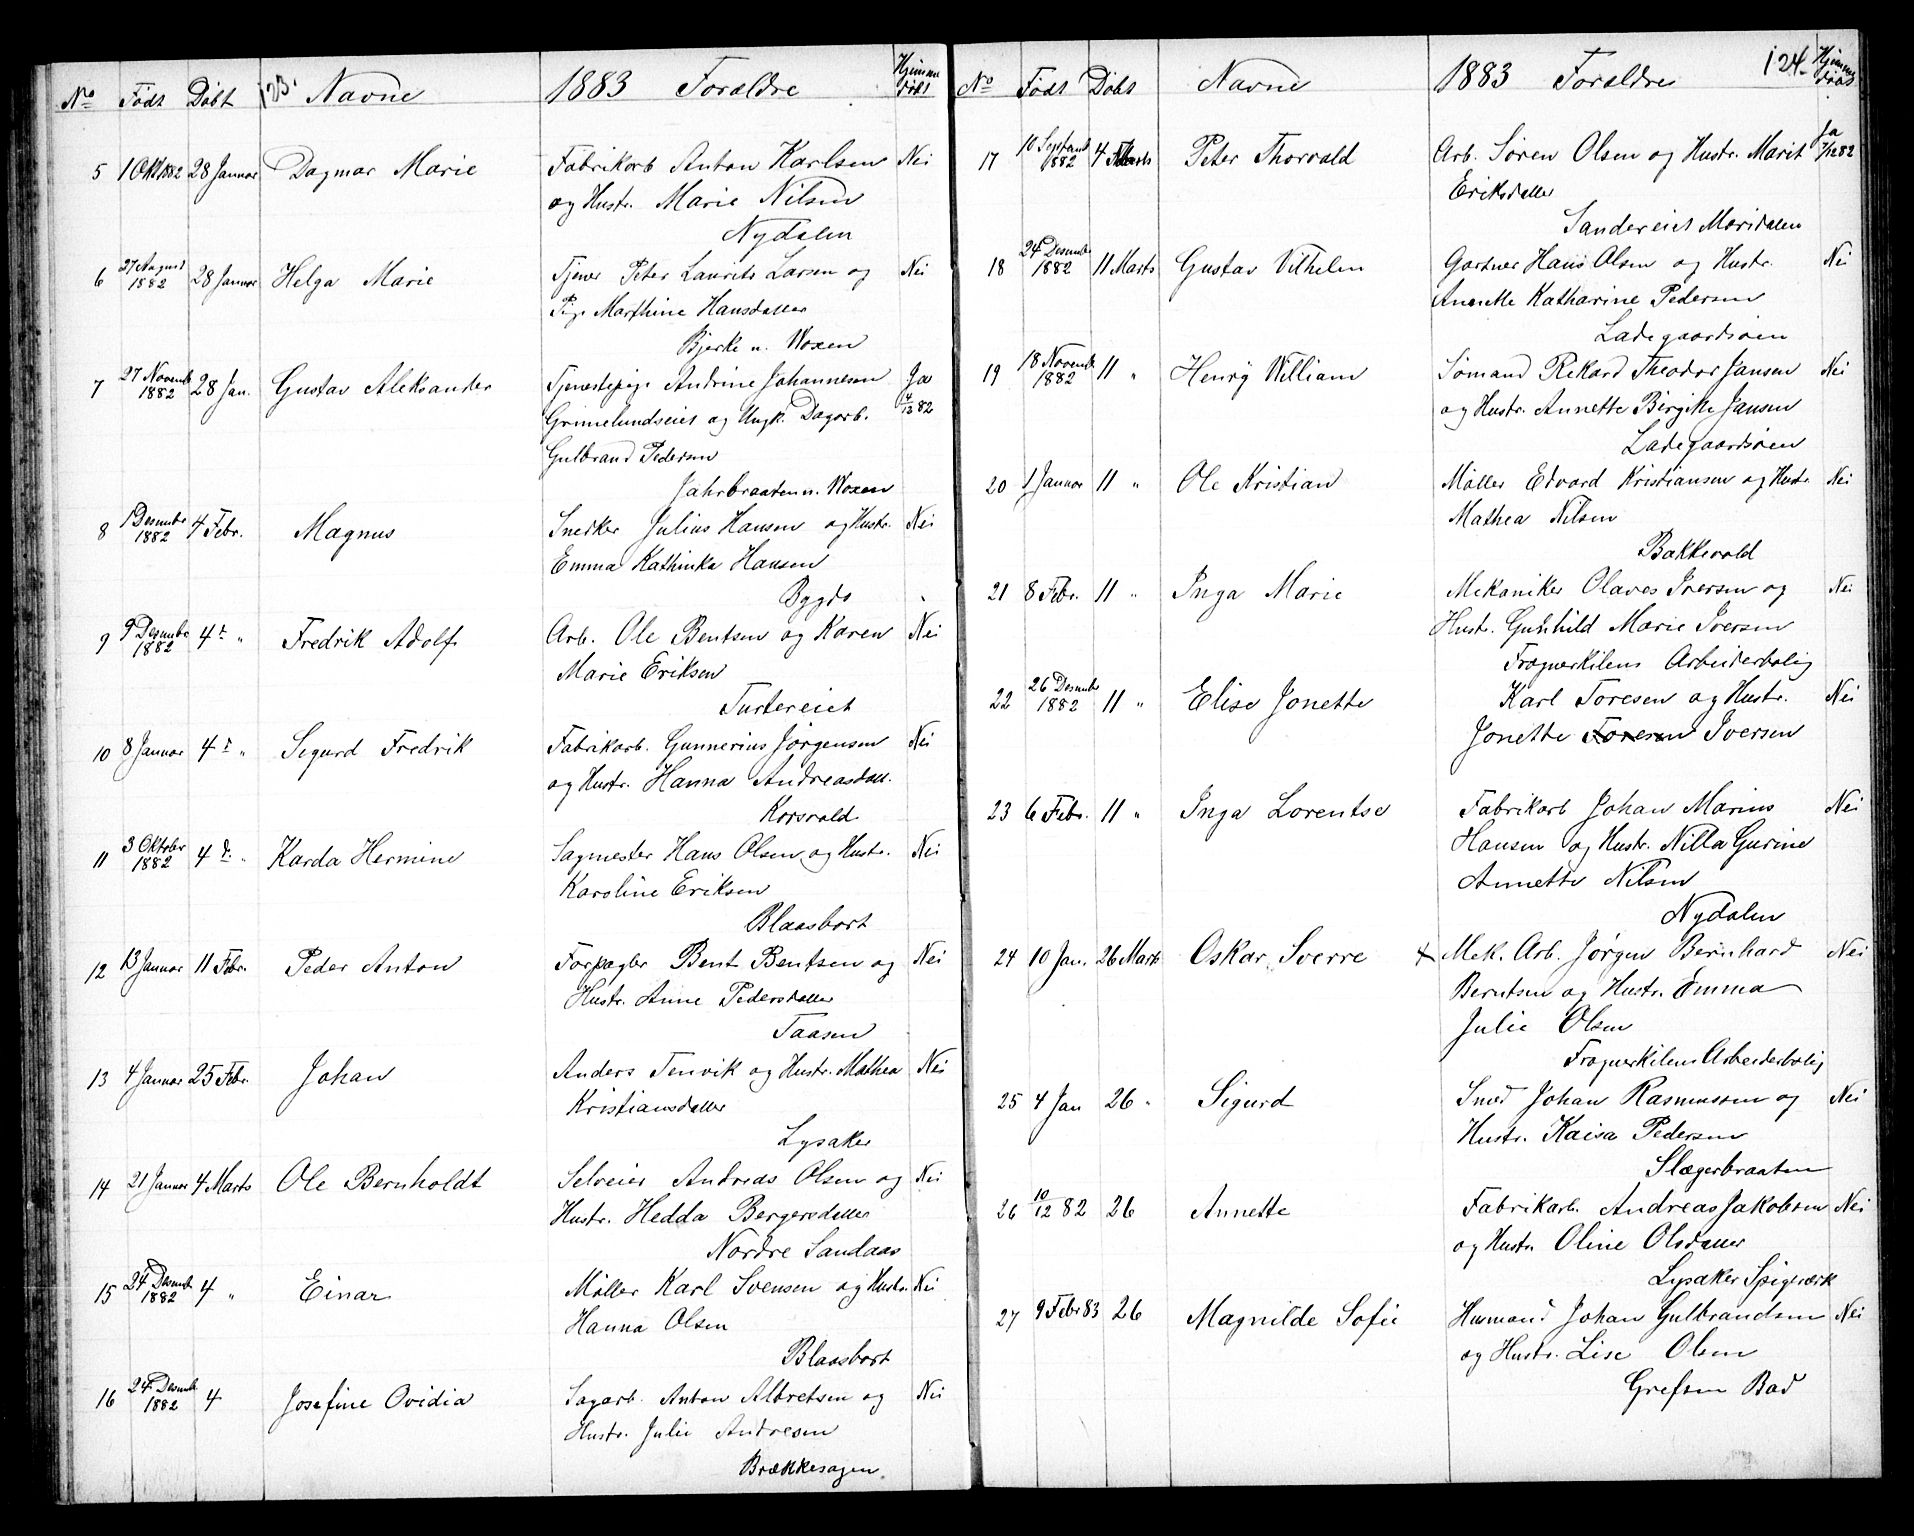 No Født Døbt 123. Navne 1883 Forældre Hjemmedøbt
5 1 Okt 1882 28 Januar Dagmar Marie Fabrikarb Anton Karlsen Nei
og Hustr. Marie Nilsen
Nydalen
6 27 August 1882 28 Januar Helga Marie Tjener Peter Laurits Larsen og Nei
Pige Marthine Hansdatter
Bjerke n. Woxen
7 27 Novemb 1882 28 Jan. Gustav Aleksander Tjenestepige Andrine Johannesen Ja
Grimelundseiet og Ungk. Dagarb. 4/12 82
Gulbrand Pedersen
Jahrbraaten n. Woxen
8 1 Desember 1882 4 Febr. Magnus Snedker Julius Hansen og Hustr. Nei
Emma Kathinka Hansen
Bygdø
9 9 Desembr 1882 4 " Fredrik Adolf Arb. Ole Bentsen og Karen Nei
Marie Eriksen
Turtereiet
10 8 Januar 4 " Sigurd Fredrik Fabrikarb. Gunnerius Jørgensen Nei
og Hustr. Hanna Andreasdatt.
Korsvold
11 3 Oktober 1882 4 " Karda Hermine Sagmester Hans Olsen og Hustr. Nei
Karoline Eriksen
Blaasbort
12 13 Januar 11 Febr. Peder Anton Forpagter Bent Bentsen og Nei
Hustr. Anne Pedersdatter
Taasen
13 4 Januar 25 Febr. Johan Anders Tenvik og Hustr. Mathea Nei
Kristiansdatter
Lysaker
14 21 Januar 4 Marts Ole Bernholdt Selveier Andreas Olsen og Nei
Hustr. Hedda Bergersdatter
Nordre Sandaas
15 24 Desemb 1882 4 " Einar Møller Karl Svensen og Hustr. Nei
Hanna Olsen
Blaasbort
16 24 Desemb 1882 4 Josefine Ovidia Sagarb. Anton Albretsen og Nei
Hustr. Julie Andresen
Brækkesagen
No Født Døbt Navne 1883 Forældre 124. Hjemmedøbt
17 10 Septemb 1882 4 Marts Peter Thorvald Arb. Søren Olsen og Hustr. Marit Ja 7/12 82
Eriksdatter
Sandereiet Maridalen
18 24 Desembr 1882 11 Marts Gustav Vilhelm Gartner Hans Olsen og Hustr. Nei
Annette Katharine Pedersen
Ladegaardsøen
19 18 Novemb 1882 11 " Henry William Sømand Rikard Theodor Jansen Nei
og Hustr. Annette Birgitte Jansen
Ladegaardsøen
20 1 Januar 11 " Ole Kristian Møller Edvard Kristiansen og Hustr Nei
Mathea Nilsen
Bakkevold
21 8 Febr. 11 " Inga Marie Mekaniker Olaves Iversen og Nei
Hustr. Gunhild Marie Iversen
Frognerkilens Arbeiderbolig
22 26 Desembr 1882 11 " Elise Jonette Karl Toresen og Hustr. Nei
Jonette Toresen Iversen
23 6 Febr. 11 " Inga Lorentse Fabrikarb Johan Marius Nei
Hansen og Hustr. Nilla Gurine
Annette Nilsen
Nydalen
24 10 Jan. 26 Marts Oskar Sverre + Mek. Arb. Jørgen Bernhard Nei
Berntsen og Hustr. Emma
Julie Olsen
Frognerkilens Arbeiderbolig
25 4 Jan 26 " Sigurd Sned Johan Rasmussen og Nei
Hustr. Kaisa Pedersen
Slagerbraaten
26 10/12 82 26 Annette Fabrikarb. Andreas Jakobsen Nei
og Hustr. Oline Olsdatter
Lysaker Spigerværk
27 9 Febr 83 26 Magnilde Sofie Husmand Johan Gulbrandsen Nei
og Hustr. Lise Olsen
Grefsen Bad